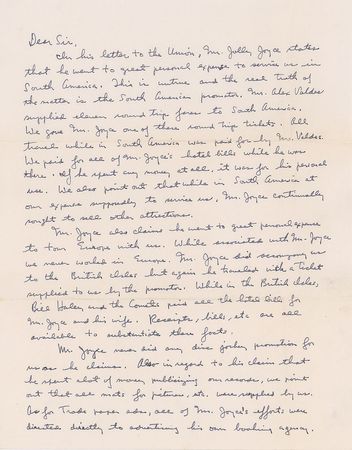 Dear Sir,
In his letter to the Union, Mr. Jolly Joyce states
that he went to great personal expense to service us in
South America. This is untrue and the real truth of
the matter is the South American promoter, Mr. Alex Valdez
supplied eleven round trip fares to South America.
We gave Mr. Joyce one of these round trip tickets. All
travel while in South America was paid for by Mr. Valdez.
We paid for all of Mr. Joyce's hotel bills while he was
there. If he spent any money at all, it was for his personal
use. We also point out that while in South America at
our expense supposedly to service us, Mr. Joyce continually
sought to sell other attractions.
Mr. Joyce also claims he went to great personal expense
to tour Europe with us. While associated with Mr. Joyce
we never worked in Europe. Mr. Joyce did accompany us
to the British Isles but again he traveled with a ticket
supplied to us by the promoter. While in the British Isles,
Bill Haley and the Comets paid all the hotel bills for
Mr. Joyce and his wife. Receipts, bills, etc are all
available to substantiate these facts.
Mr Joyce never did any disc jockey promotion for
us as he claims. Also in regard to his claim that
he spent alot of money publicizing our records, we point
out that all mats for pictures, etc. were supplied by us.
As for Trade paper ads, all of Mr. Joyce's efforts were
directed directly to advertising his own booking agency.